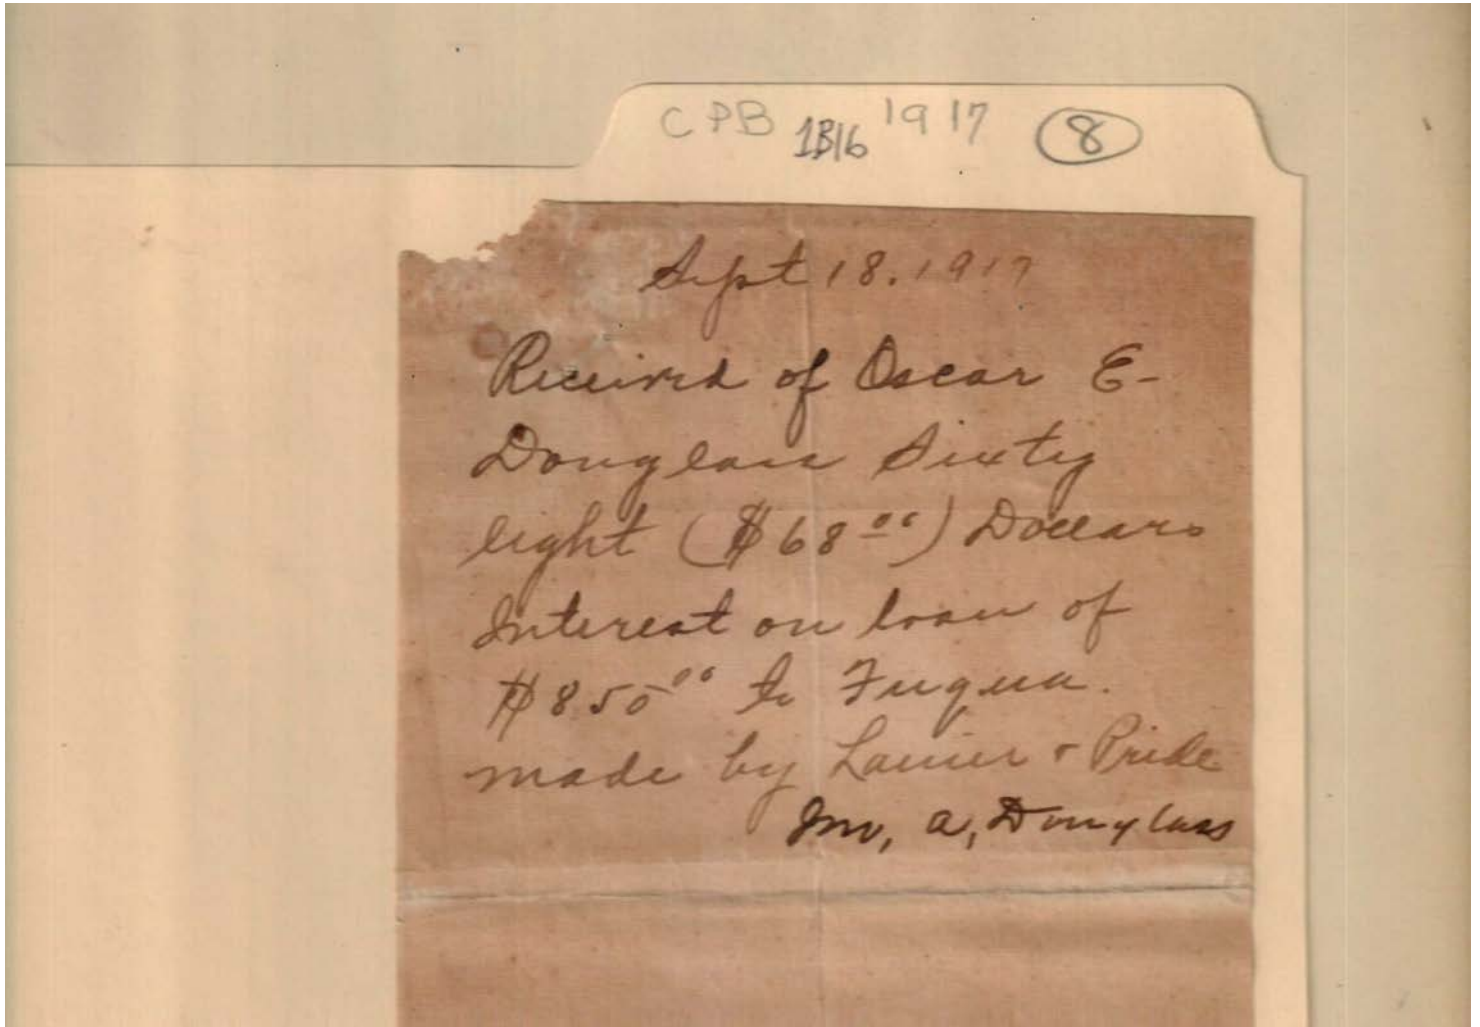 CPB 1B16 1917 8
Sept 18. 1917
Received of Oscar E-
Douglass Sixty
eight ($68 00) Dollars
Interest on loan of
$850 00 to Fuqua.
made by Lanier & Pride
Jno, A, Douglass